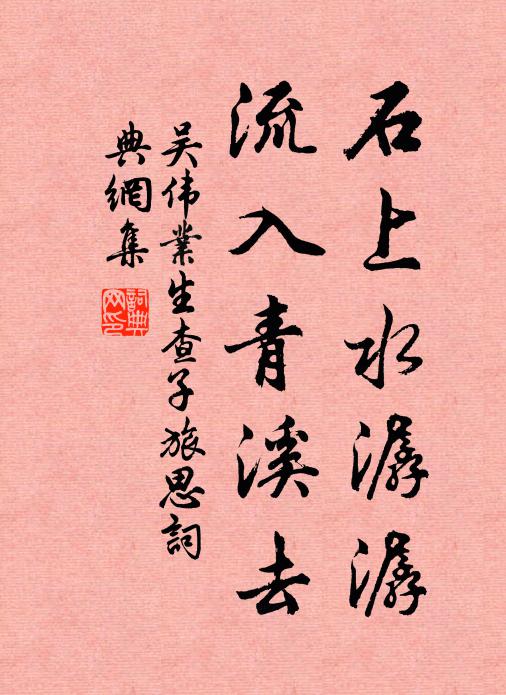 石上水潺潺
流入青溪去
吴伟業生查子旅思詞
典網集
詞典
网印